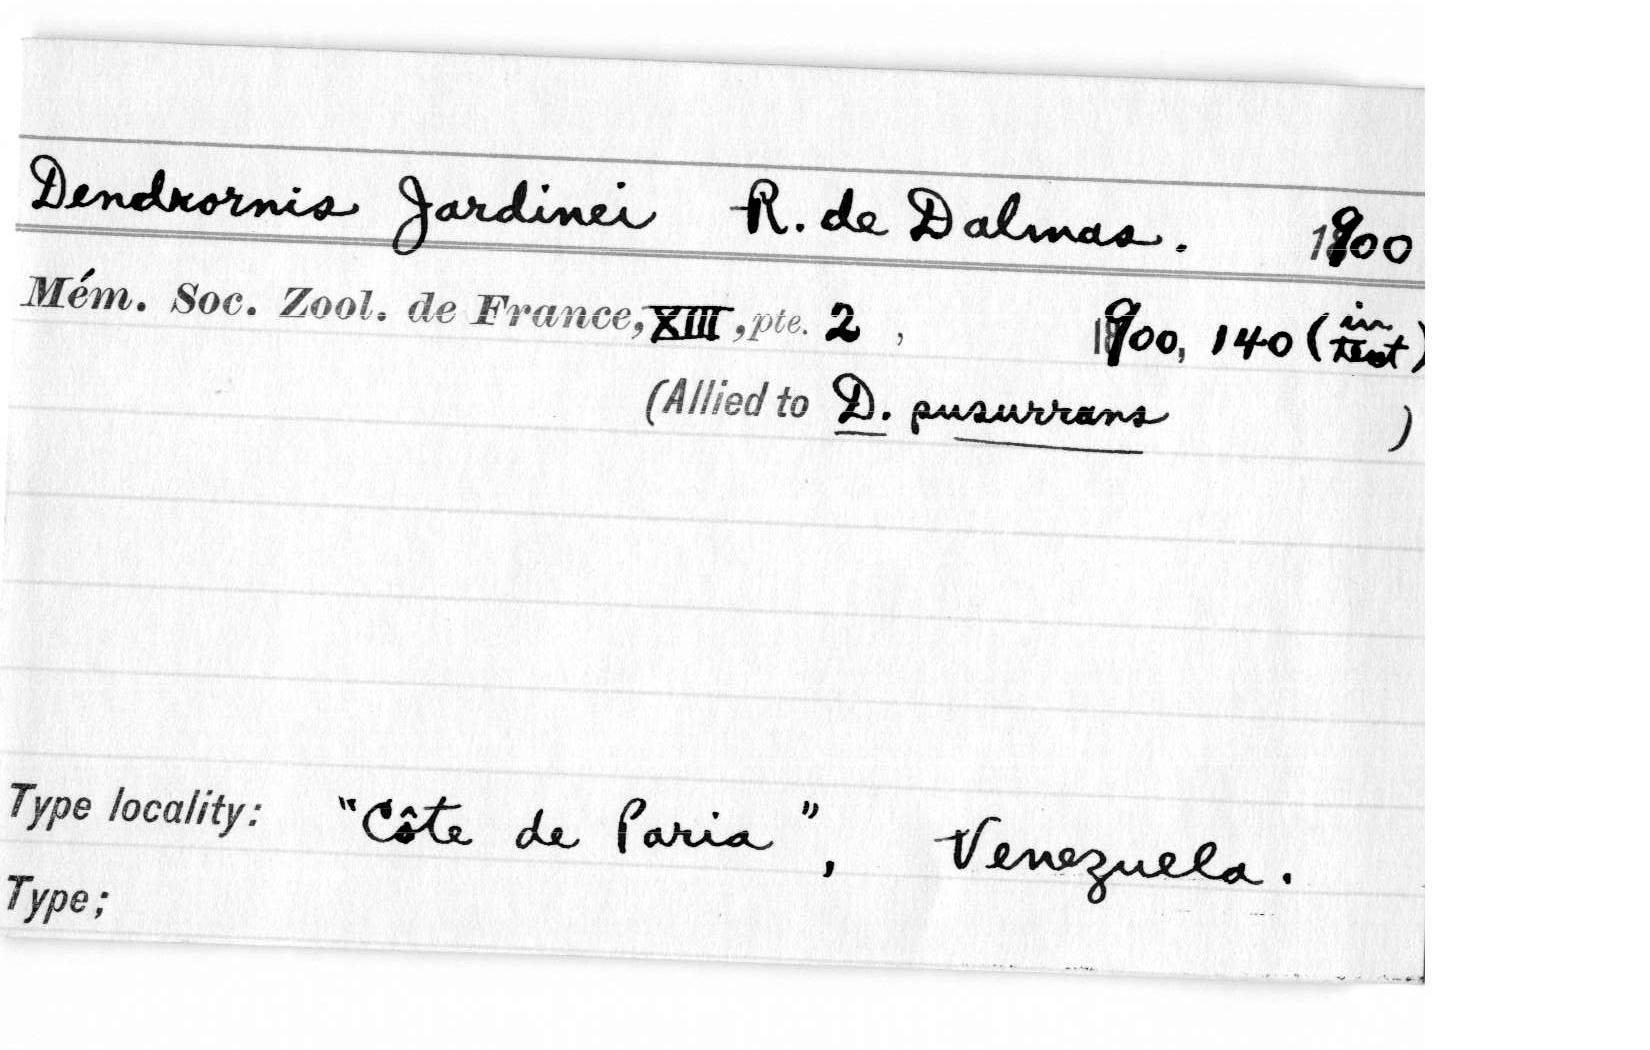 Dendrornis Jardinei R. de Dalmas. 1900
Mém. Soc. Zool. de France, XIII, pte. 2, 1900, 140 (in text)
(Allied to D. pusurrans )
Type locality: "Côte de Paria", Venezuela.
Type;